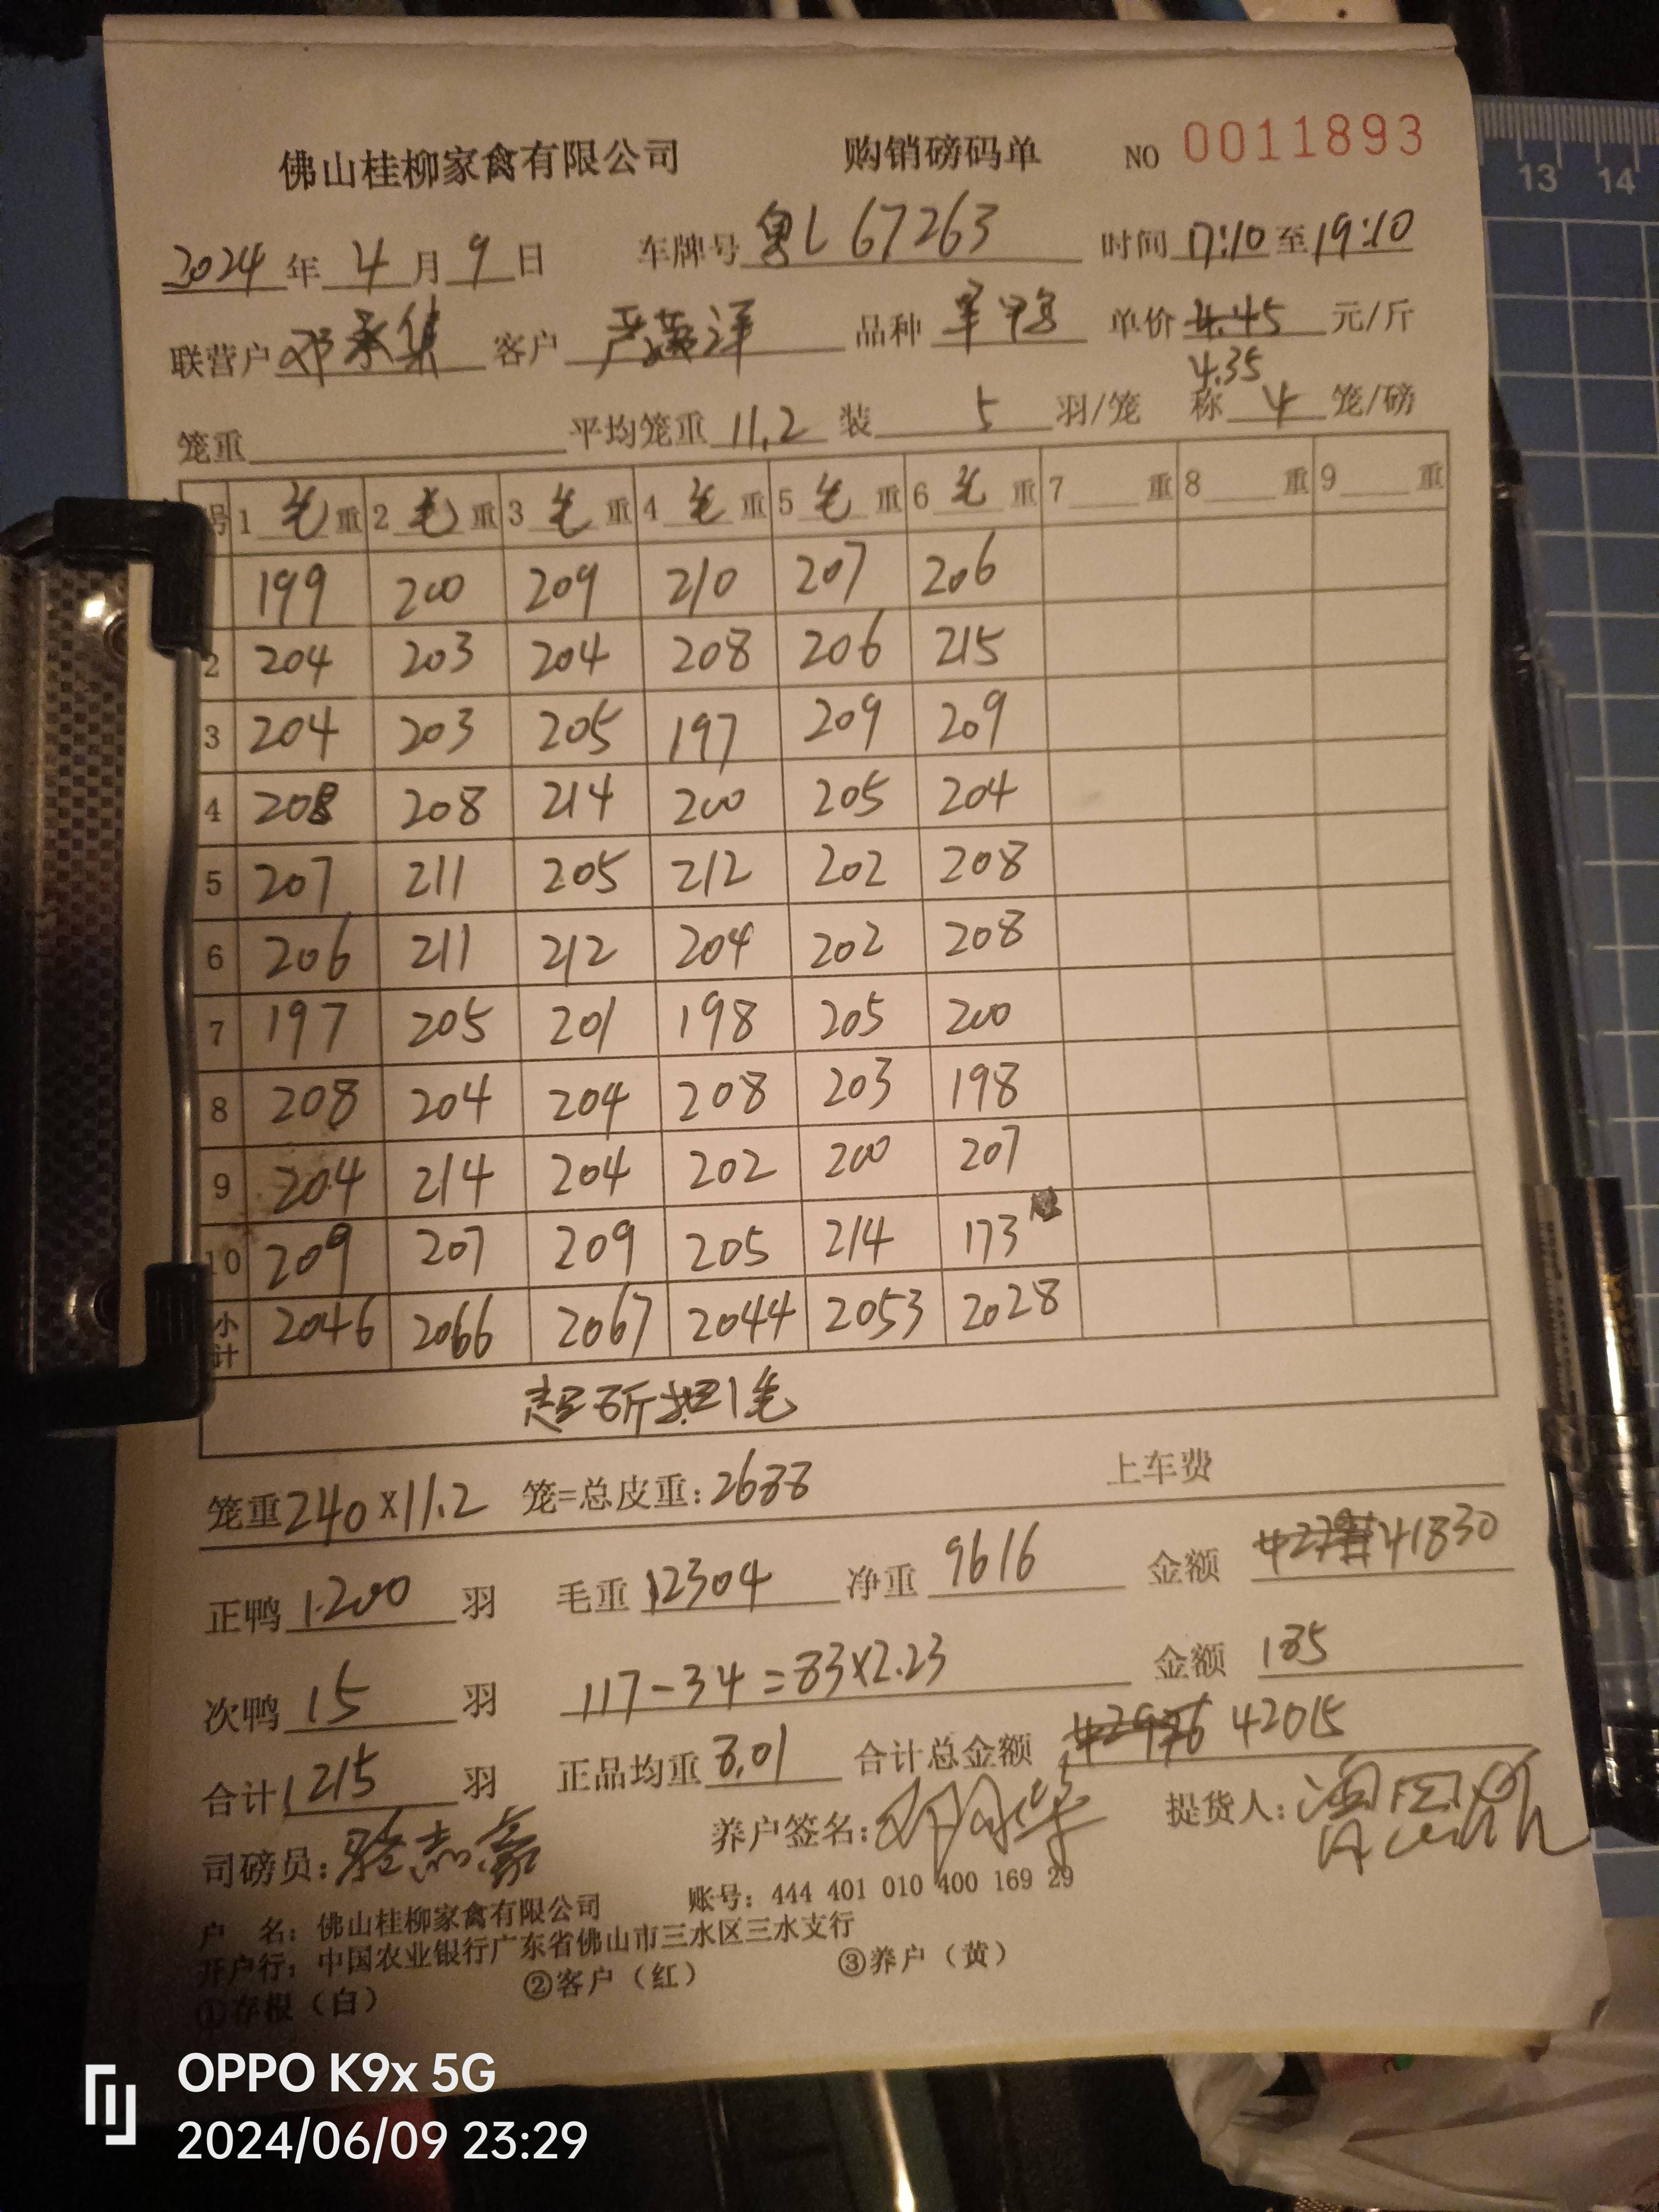 13 14
佛山桂柳家禽有限公司 购销磅码单 NO 0011893
2024 年 4 月 9 日 车牌号 粤L 67263 时间 17:10 至 19:10
联营户 邓承集 客户 严英洋 品种 单鸭 单价 4.45 元/斤
4.35
笼重 平均笼重 11.2 装 5 羽/笼 称 4 笼/磅
号 1 毛 重 2 毛 重 3 毛 重 4 毛 重 5 毛 重 6 毛 重 7 重 8 重 9 重
199 200 209 210 207 206
2 204 203 204 208 206 215
3 204 203 205 197 209 209
4 208 208 214 200 205 204
5 207 211 205 212 202 208
6 206 211 212 204 202 208
7 197 205 201 198 205 200
8 208 204 204 208 203 198
9 204 214 204 202 200 207
10 209 207 209 205 214 173
小计 2046 2066 2067 2044 2053 2028
超8斤扣1毛
笼重 240 x 11.2 笼=总皮重: 2688 上车费
正鸭 1200 羽 毛重 12304 净重 9616 金额 41830
次鸭 15 羽 117-34=83x2.23 金额 185
合计 1215 羽 正品均重 8.01 合计总金额 42015
司磅员: 骆志豪 养户签名: 提货人:
户 名: 佛山桂柳家禽有限公司 账号: 444 401 010 400 169 29
开户行: 中国农业银行广东省佛山市三水区三水支行
①存根（白） ②客户（红） ③养户（黄）
OPPO K9x 5G
2024/06/09 23:29